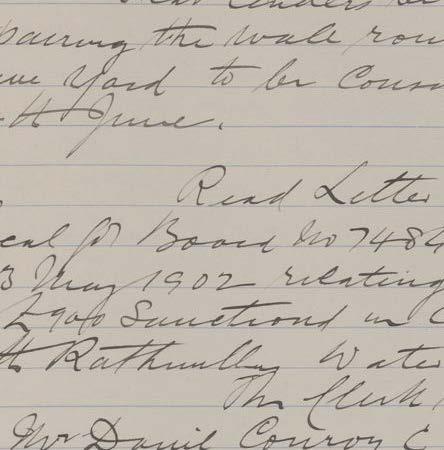 pairing the wall roun
Yard to be Cons
th June.
Read Letter
cal Gt Board No 7484
3 May 1902 relating
£900 Sanctioned in
th Rathmullen Water
The Clerk
Mr Daniel Conroy C